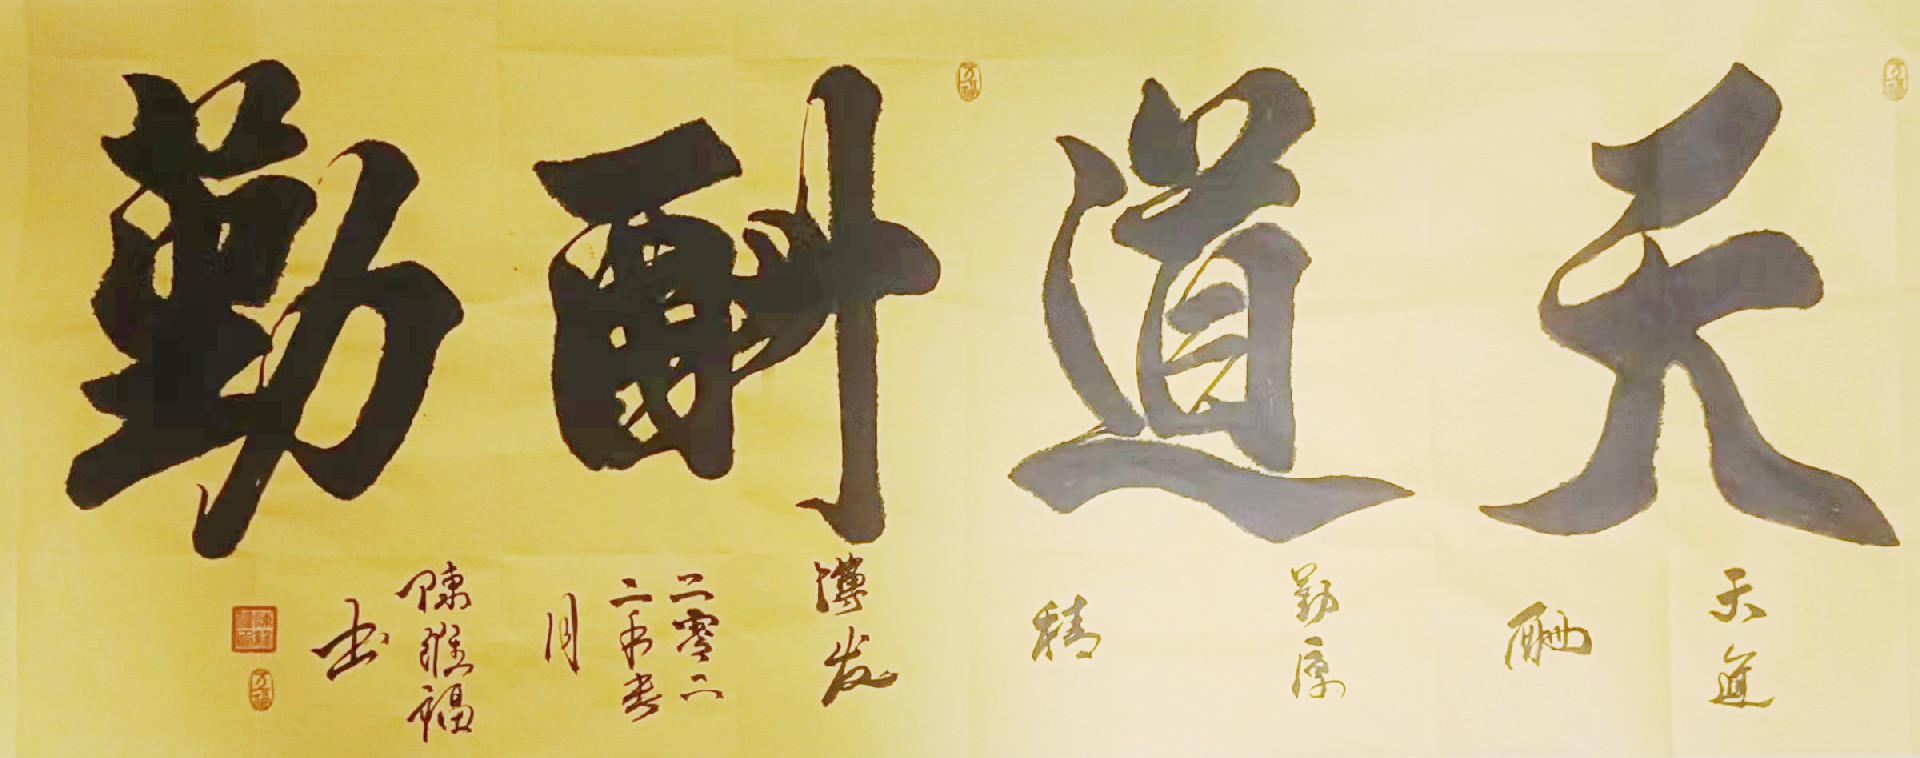 天道酬勤
天道
酬
勤厚
積
薄发
二零二
二年春
月
陳福
书